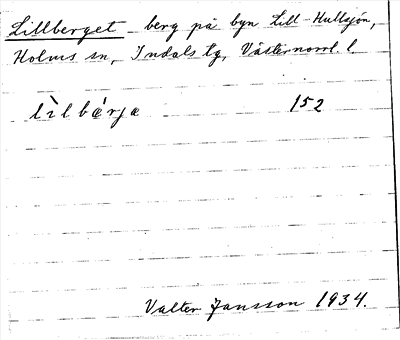 Lillberget - berg på byn Lill-Hullsjön,
Holms sn, Indals tg, Västernorrl. l.
lìlbærja 152
Valter Jansson 1934.